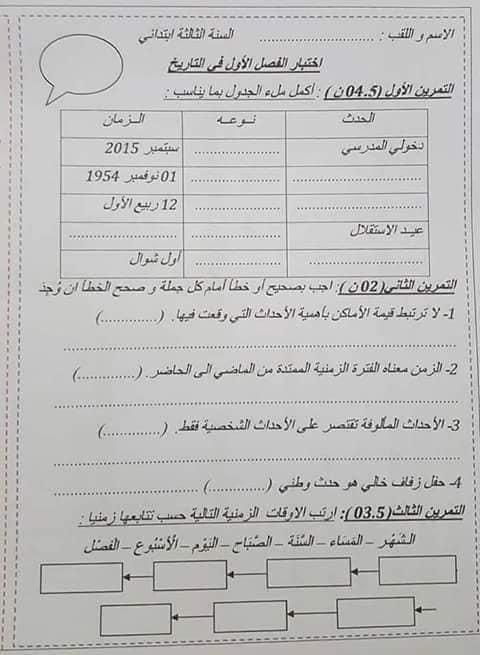 الاسم و اللقب : ........................ السنة الثالثة ابتدائي
اختبار الفصل الأول في التاريخ
التمرين الأول (04.5 ن ) : أكمل ملء الجدول بما يناسب :
الحدث نـوعـه الـزمان
دخولي المدرسي ...................... سبتمبر 2015
................................ ...................... 01 نوفمبر 1954
................................ ...................... 12 ربيع الأول
عيـد الاستقلال ...................... ......................
...................... ...................... أول شوال
التمرين الثاني(02 ن ): اجب بصحيح أو خطأ أمام كل جملة و صحح الخطأ ان وُجِدَ
1- لا ترتبط قيمة الأماكن بأهمية الأحداث التي وقعت فيها. (.............)
................................................................................
2- الزمن معناه الفترة الزمنية الممتدة من الماضي الى الحاضر. (.............)
................................................................................
3- الأحداث المألوفة تقتصر على الأحداث الشخصية فقط. (.............)
................................................................................
4- حفل زفاف خالي هو حدث وطني (.............) ................................
التمرين الثالث(03.5 ): ارتب الاوقات الزمنية التالية حسب تتابعها زمنيا :
الشَهْر – المَسَاء – السَّنَة – الصَّبَاح – اليَوْم – الأُسْبُوع – الفَصْل